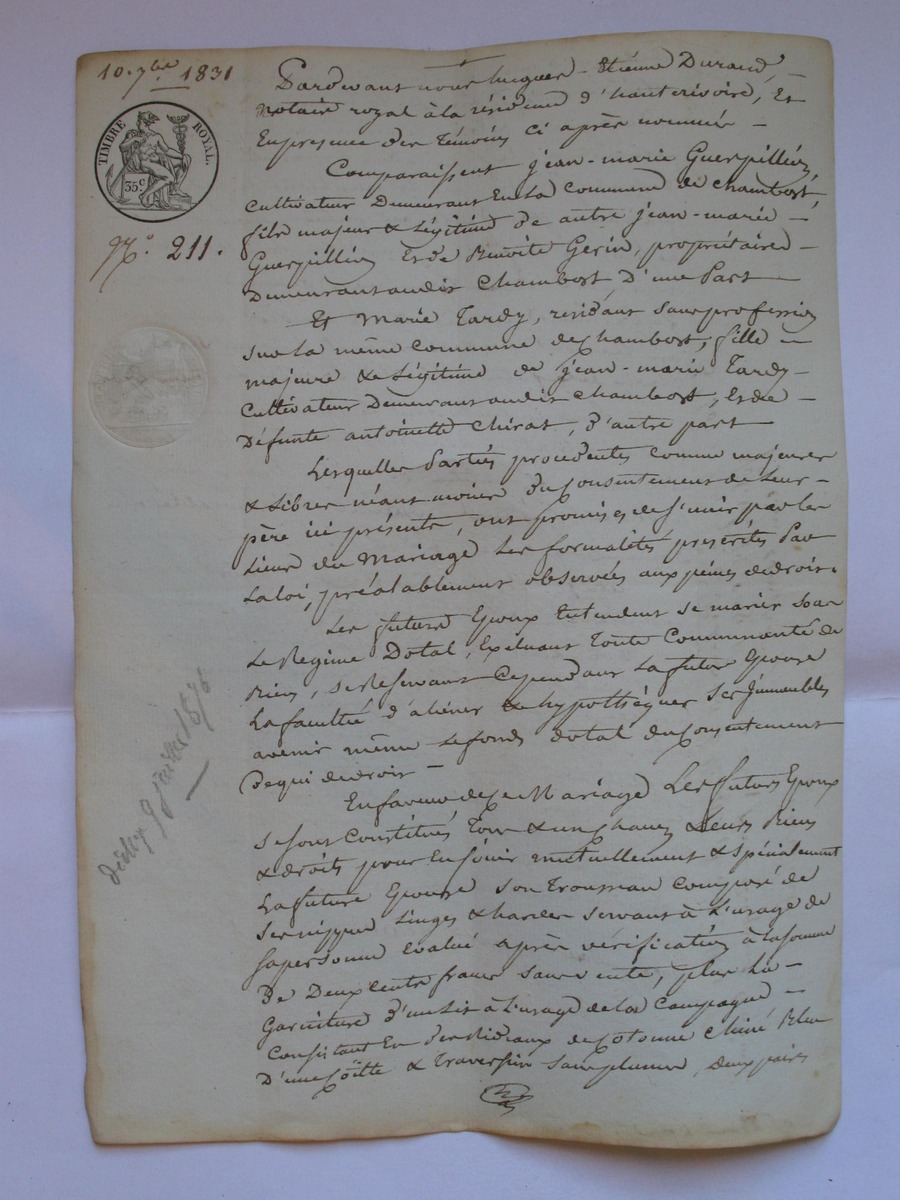 10 7bre 1831
TIMBRE ROYAL.
35c
No. 211.
Pardevant nous hugues-Etienne Durand,
notaire royal à la résidence d'hautrivoire, Et
En presence des Témoins ci après nommés —
Comparaissent jean-marie Guerpillion
cultivateur Demeurant En la commune de chambost,
fils majeur & Légitime de autre jean-marie —
Guerpillion Et de Benoite Gerin, propriétaire —
Demeurant audit Chambost, D'une Part —
Et Marie Tardy, residant sans profession
sur la même commune de chambost, fille —
majeure & Légitime de jean-marie Tardy —
cultivateur Demeurant audit chambost, Et de —
Défunte antoinette Chirat, d'autre part —
Lesquelles Parties procedentes comme majeures
& Libres néantmoins du Consentement de Leur —
père ici présents, ont promis de s'unir par les
Liens du Mariage Les formalités préscrites Par
La loi, préalablement observées aux peines de droit.
Les futurs Epoux Entendent se marier sous
Le Regime Dotal, Excluant Toute Communauté de
Biens, se Reservant Cependant La future Epouse
La faculté d'aliéner & hypothéquer Ses Immeubles
avenir même Le fonds dotal du Consentement
De qui de droit —
En faveur de Ce Mariage Les futurs Epoux
se sont Constitués Tous & un chacun Leurs Biens
& droits pour En jouir mutuellement & spécialement
La future Epouse son Trousseau Composé de
ses nippes Linges & hardes servant à L'usage de
sa personne Evalué après vérification à la somme
De Deux cents francs sans vente, plus La —
Garniture D'un Lit à L'usage de la Campagne —
Consistant En des Rideaux de Cotonne Chiné Bleu
D'une Coitte & Traversin sans plume, deux paires